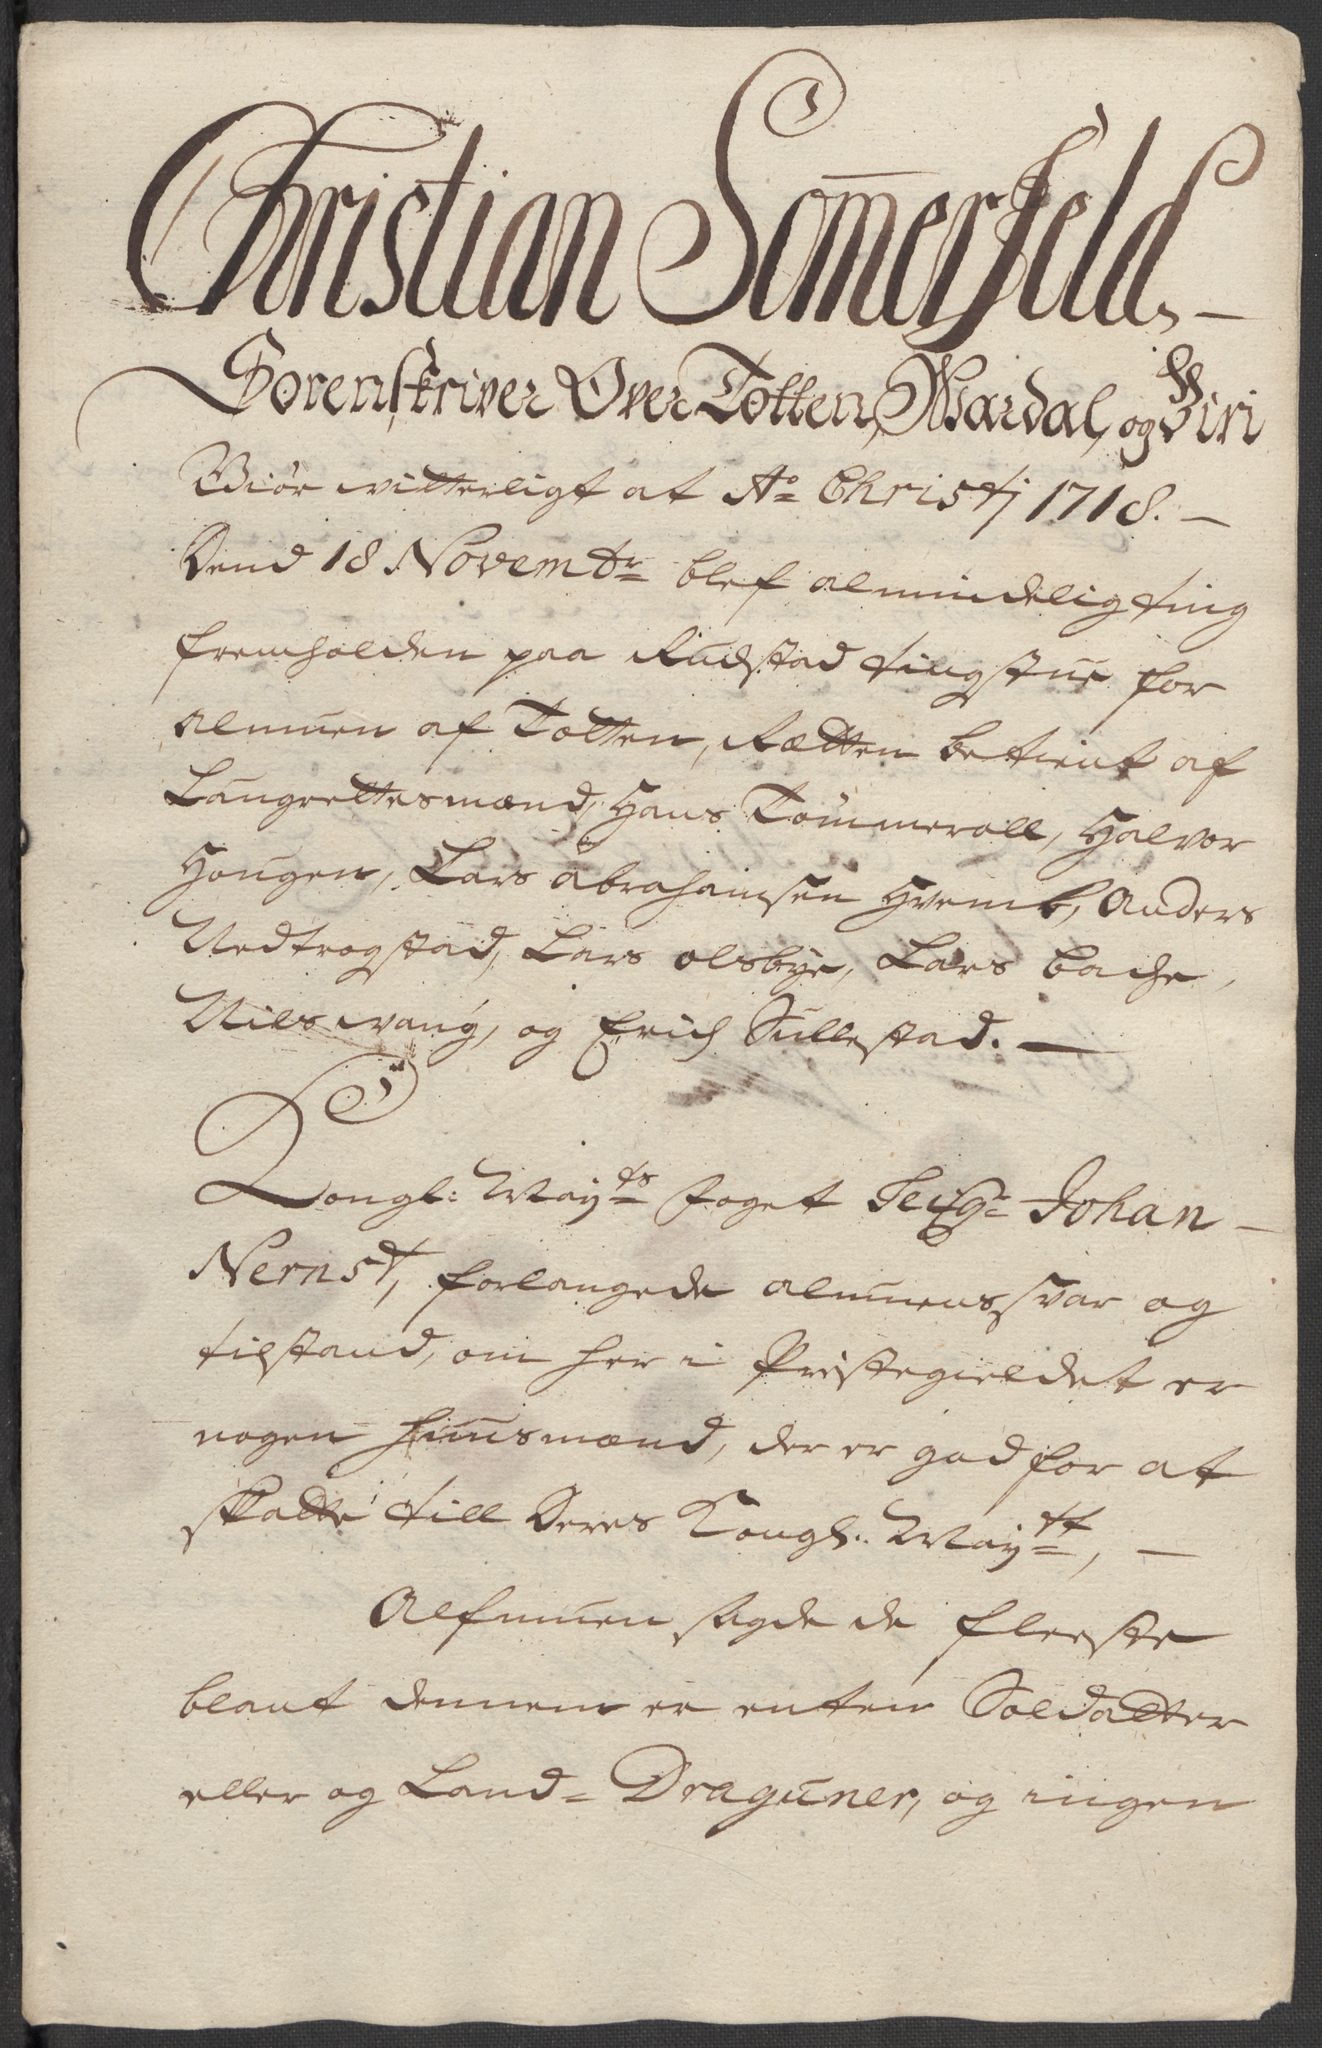 Christian Somerfeld,
Sorenskriver Over Totten, Wardal, og Biri
Giør witterligt at Ao Christi 1718. —
Dend 18 Novembr blef almindelig ting
fremholden paa Rudstad tingstue for
almuen af Totten, Rætten betient af
Laugrettesmænd, Hans Tømmeroll, Halvor
Hougen, Lars Abrahamsen Hvemb, Anders
Nedtrogstad, Lars Olsbye, Lars Bache,
Niels wang, og Erich Sullestad. —
Kongl: Mayts Foget Sr Johan
Nernst, forlangede almuens svar og
tilstand, om her i Præstegieldet er
nogen huusmænd, der er god for at
skatte till Deres Kongl. Maytt, —
Alfmuen sagde de fleeste
blant dennem er enten Soldatter
eller og Land-Draguner, og ingen